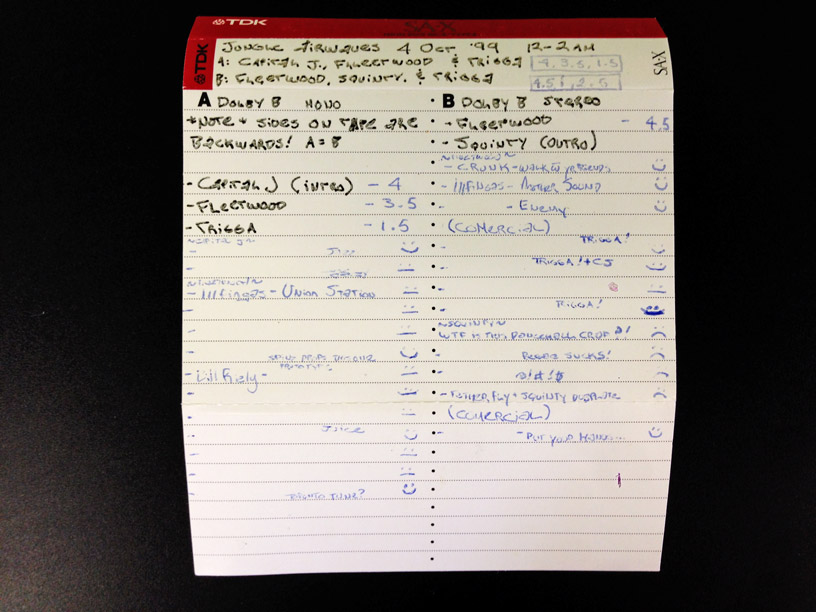 TDK SA-X
TDK
JUNGLE AIRWAVES 4 OCT '99 12-2AM
A: CAPITAL J, FLEETWOOD & TRIGGA 4, 3.5, 1.5
B: FLEETWOOD, SQUINTY, & TRIGGA 4.5, 2.5
SA-X
A DOLBY B MONO
*NOTE* SIDES ON TAPE ARE
BACKWARDS! A=B
- CAPITAL J (INTRO) - 4
- FLEETWOOD - 3.5
- TRIGGA - 1.5
- Illfingas - Union Station
- Lill Rely -
JUICE
TORONTO TUNZ?
B DOLBY B STEREO
- FLEETWOOD - 4.5
- SQUINTY (OUTRO)
- CRUNK - WALK
- Illfingas - Mother Sound
- Enemy
(COMERCIAL)
- TRIGGA!
- TRIGGA! + CJ
- TRIGGA!
~SQUINTY~
WTF IS THIS DANCEHALL CRAP?!
- REGGAE SUCKS!
- @!#1$
- SQUINTY DUBPLATE
(COMERCIAL)
- PUT YOUR HANDS...